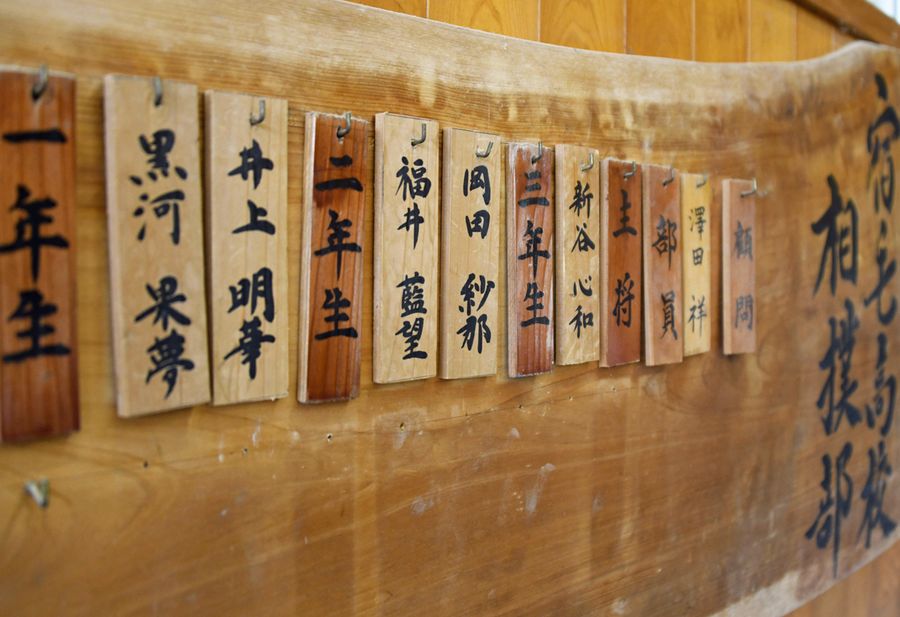 宿毛高校
相撲部
顧問
澤田 祥
部員
主将
新谷 心和
三年生
岡田 紗那
福井 藍望
二年生
井上 明華
黒河 果夢
一年生